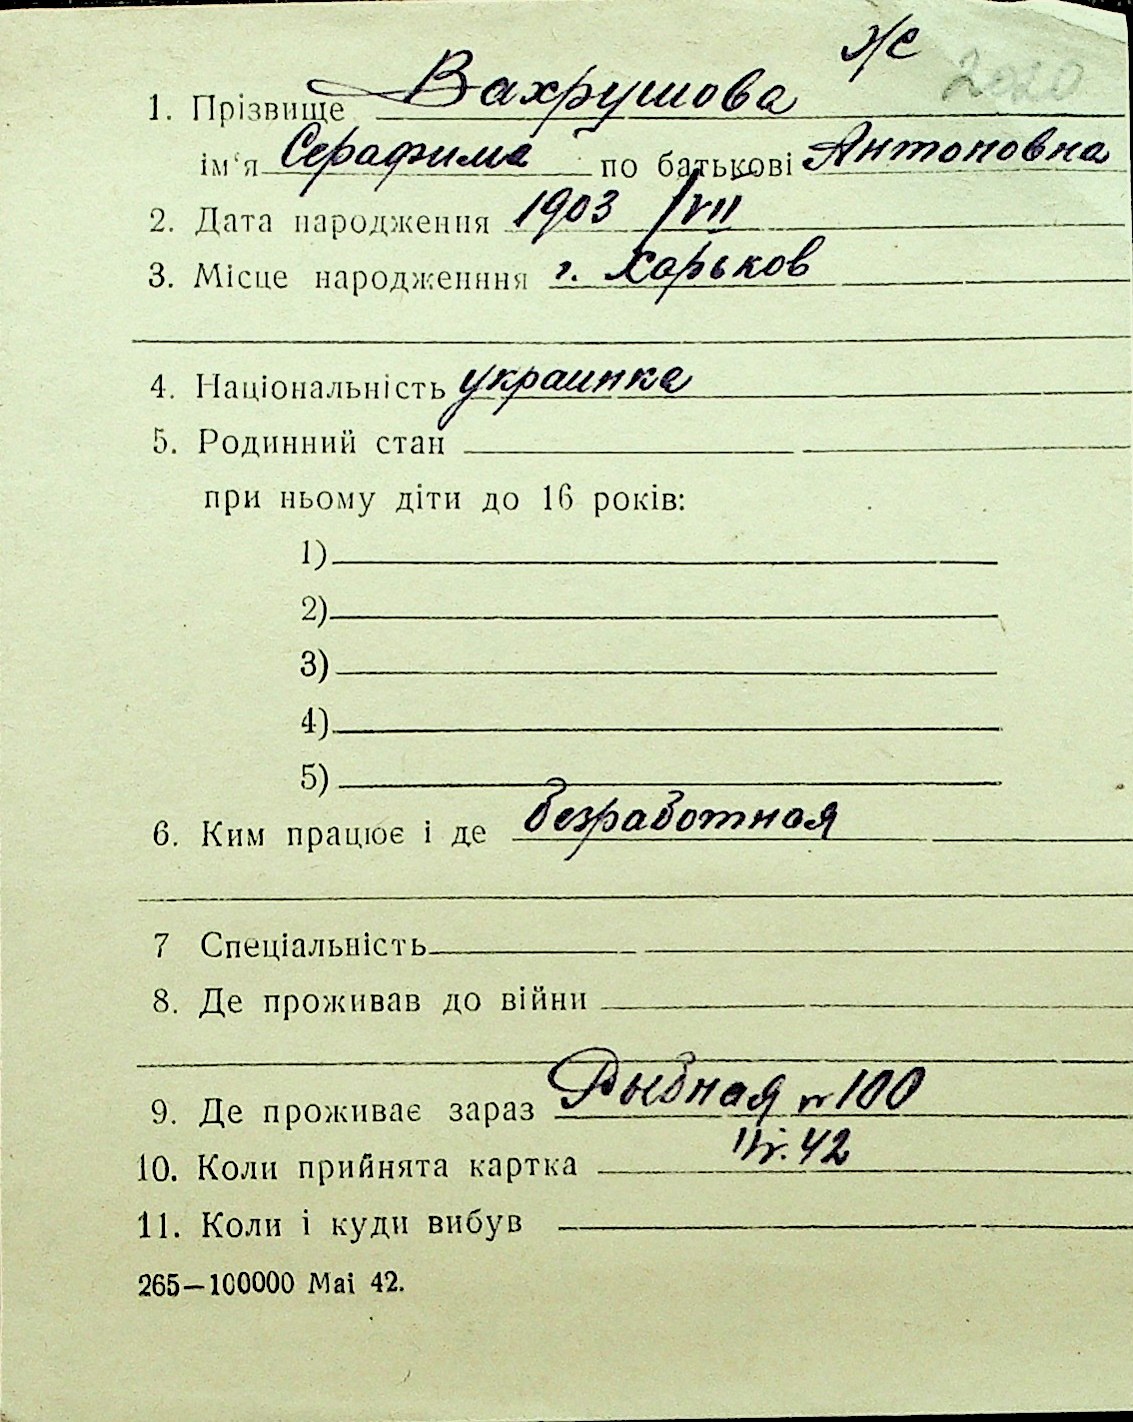 ж
2020
1. Прізвище Вахрушова
ім'я Серафима по батькові Антоновна
2. Дата народження 1903 /VII
3. Місце народженння г. Харьков
4. Національність украинка
5. Родинний стан
при ньому діти до 16 років:
1)
2)
3)
4)
5)
6. Ким працює і де безработная
7 Спеціальність
8. Де проживав до війни
9. Де проживає зараз Рыбная № 100
10. Коли прийнята картка 42
11. Коли і куди вибув
265—100000 Маі 42.